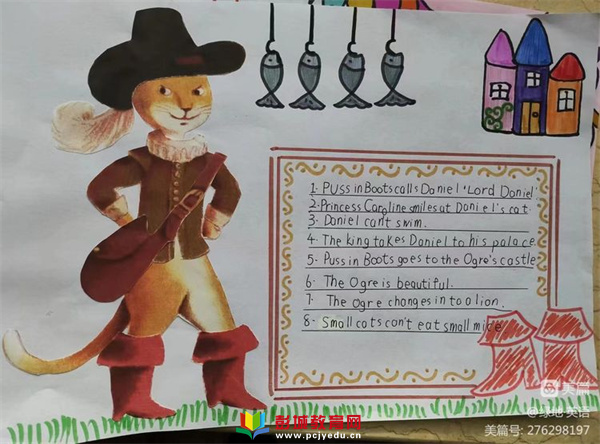 1. Puss in Boots calls Daniel 'Lord Daniel'.
2. Princess Caroline smiles at Daniel's cat.
3. Daniel can't swim.
4. The king takes Daniel to his palace
5. Puss in Boots goes to the Ogre's castle
6. The Ogre is beautiful.
7. The Ogre changes in to a lion.
8. Small cats can't eat small mice
美篇
@绿地 英语
美篇号: 276298197
彭城教育网
www.pcjyedu.cn